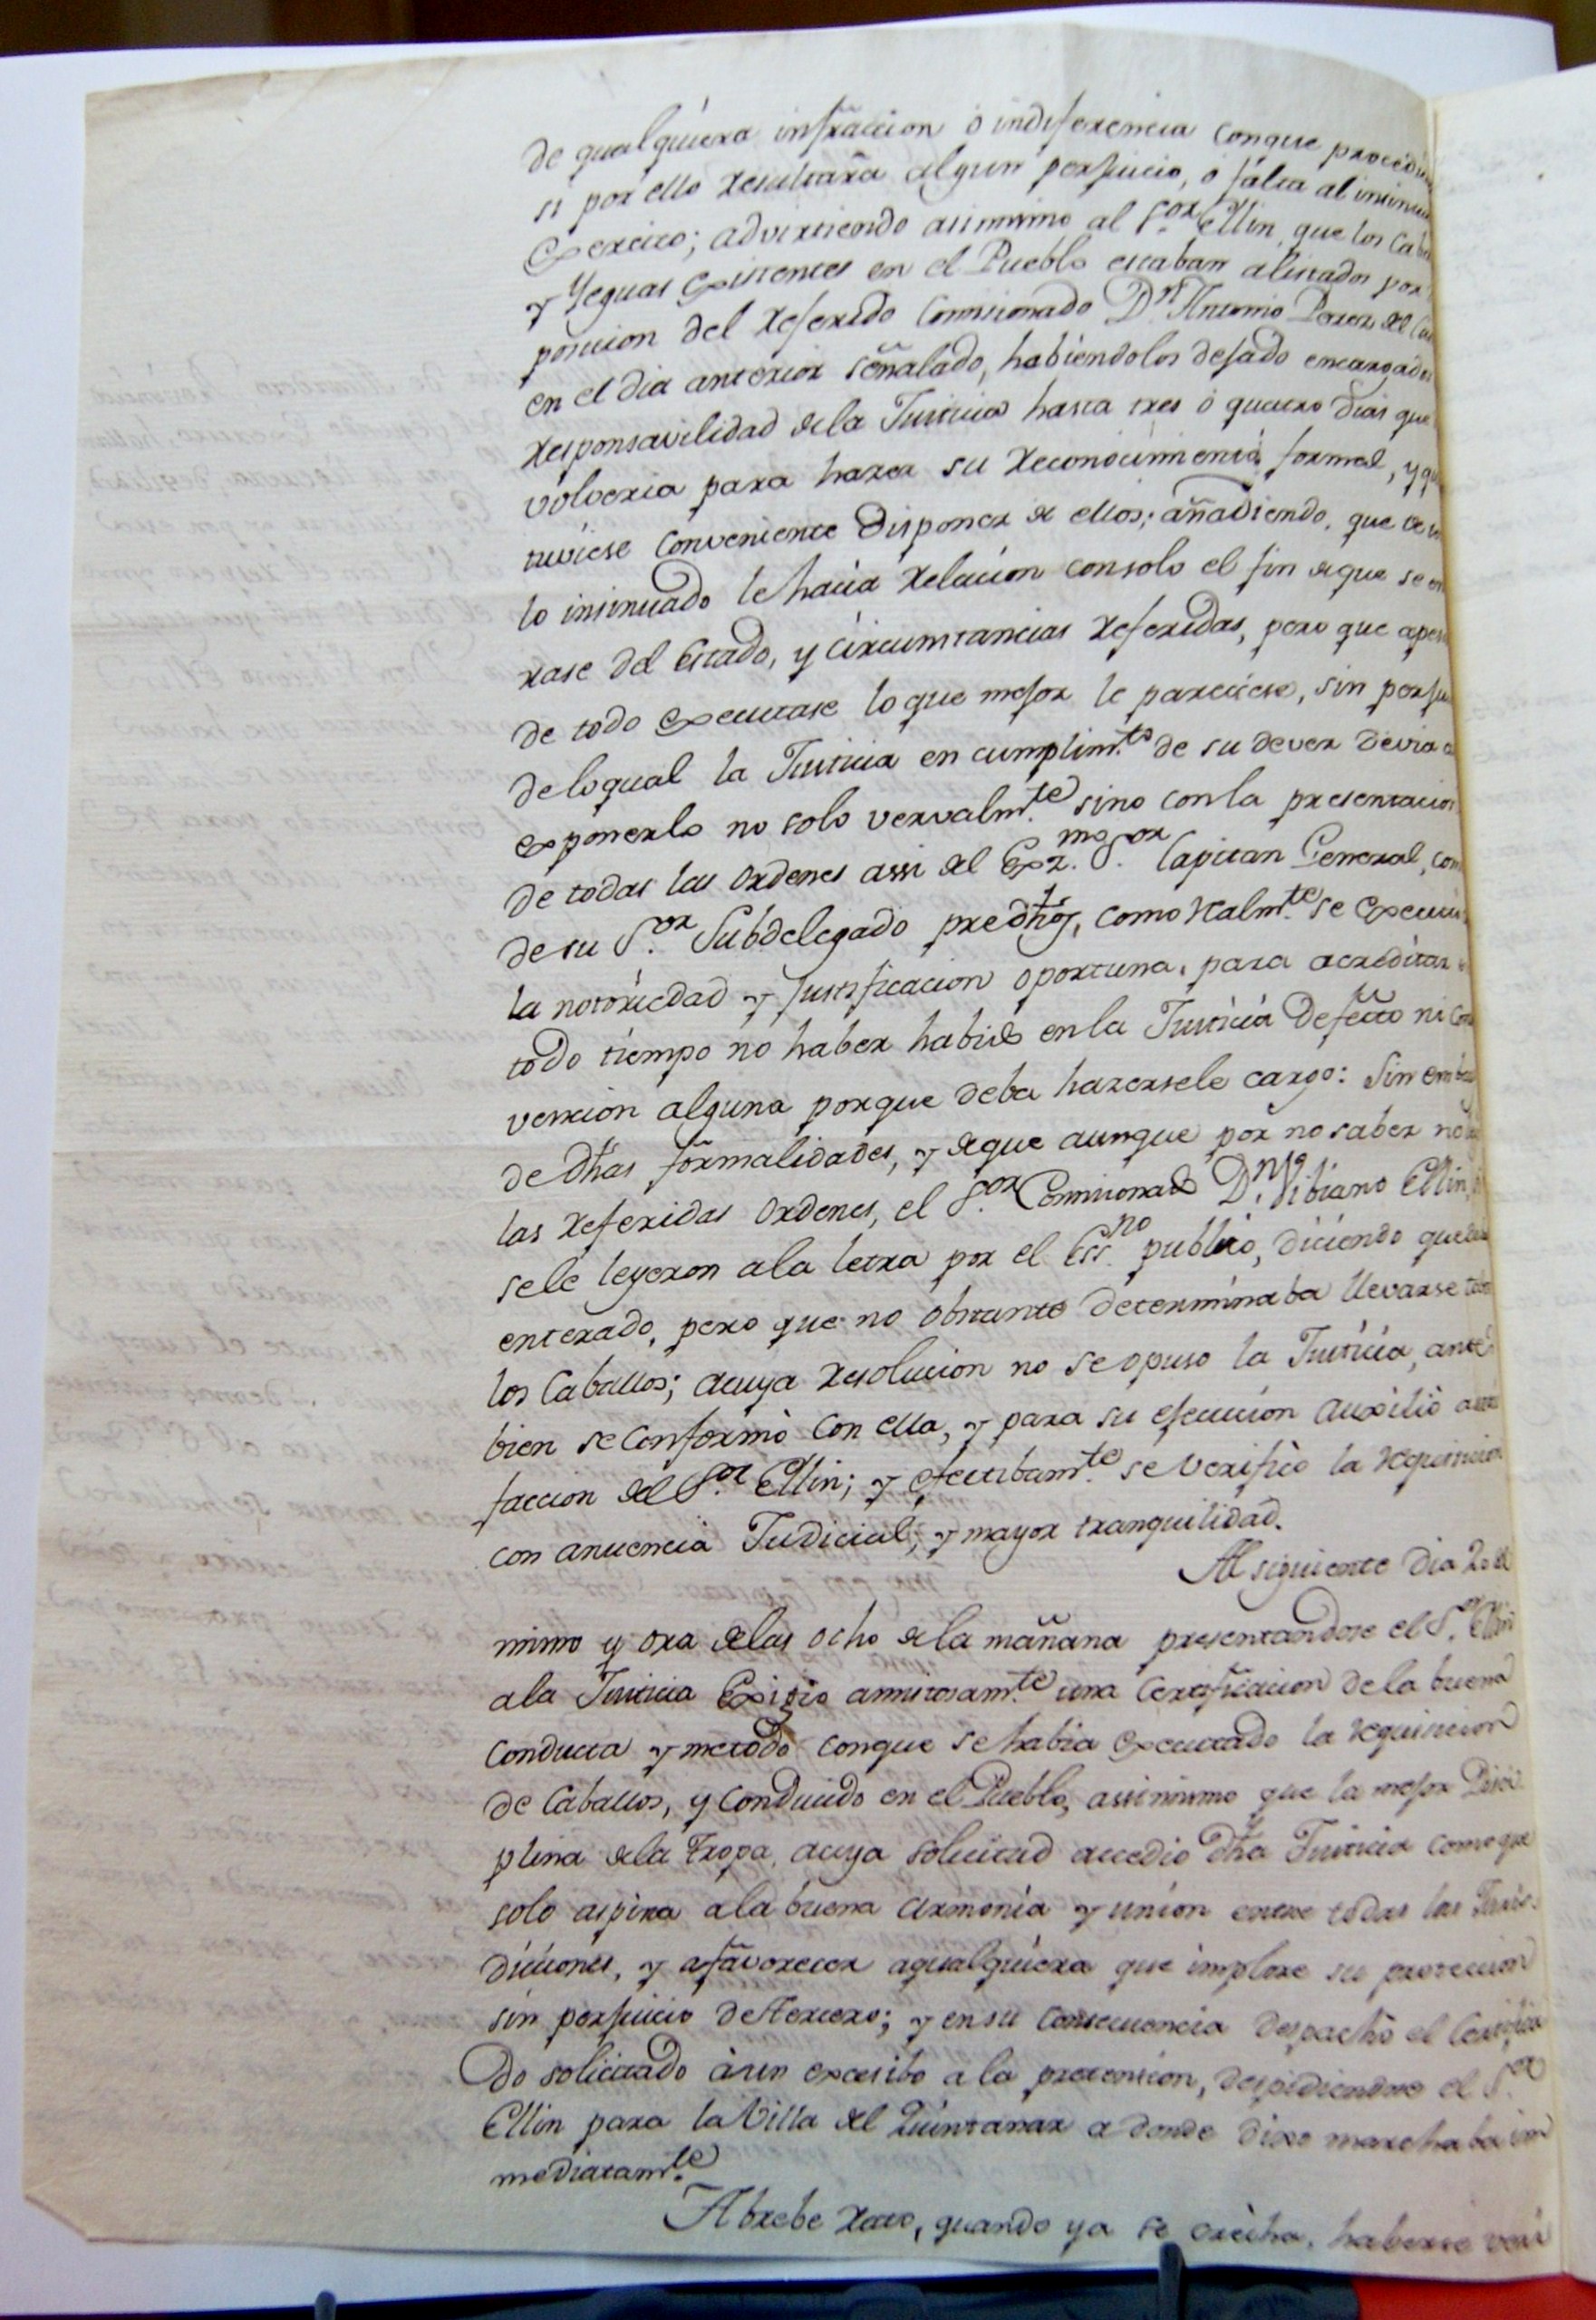 de qualquiera infracción ó indiferencia conque procedi
si por ello resultara algun perjuicio, ó falta al insinua
Exercito; advirtiendo asimismo al S.or Ellin, que los Caba
y Yeguas Existentes en el Pueblo estaban alistados por
posicion del referido Comisionado D.n Antonio Perez del
en el dia anterior señalado, habiendolos dejado encargados
responsavilidad dela Justicia hasta tres ó quatro dias que
volveria para hazer su reconocimiento formal, y que
tuviese conveniente disponer de ellos; añadiendo, que de
lo insinuado le hacia relacion consolo el fin deque se en
rase del Estado, y circunstancias referidas, pero que apesa
de todo executase lo que mejor le pareciese, sin perjui
delo qual la Justicia en cumplim.to de su dever devia
exponerlo no solo vervalm.te sino con la presentacion
de todas las ordenes assi del Exz.mo S.or Capitan General, com
de su S.or Subdelegado predhos, como realm.te se executó
la notoriedad y justificacion oportuna, para acreditar
todo tiempo no haber habido en la Justicia defecto ni con
vencion alguna porque deba hazersele cargo: Sin emba
de dhas formalidades, y deque aunque por no saber no
las referidas ordenes, el S.or Comisionado D.n Vibiano Ellin,
sele leyeron ala letra por el Ess.no publico, diciendo queda
enterado, pero que no obstante determinaba llevarse todos
los Caballos; acuya resolucion no se opuso la Justicia, antes
bien se conformó con ella, y para su ejecucion auxilió
faccion del S.or Ellin; y efectibam.te se verificó la requisicion
con anuencia Judicial, y mayor tranquilidad.
Al siguiente dia 20 del
mismo y ora delas ocho dela mañana presentandose el S.or Ellin
ala Justicia Exigio amistosam.te una Certificacion de la buena
conducta y metodo conque se habia executado la requisicion
de Caballos, y conducido en el Pueblo, assimismo que la mejor Disci
plina dela tropa, acuya solicitud accedio dha Justicia como que
solo aspira ala buena armonia y union entre todas las Juris-
diciones, y afavorecer aqualquiera que implore su proteccion
sin perjuicio de tercero; y en su consecuencia despachó el Certifica
do solicitado àun excesibo a la pretension, despidiendose el S.or
Ellin para la Villa del Quintanar a donde dixo marchaba im
mediatam.te
A brebe rato, quando ya se creiha, haberse veri